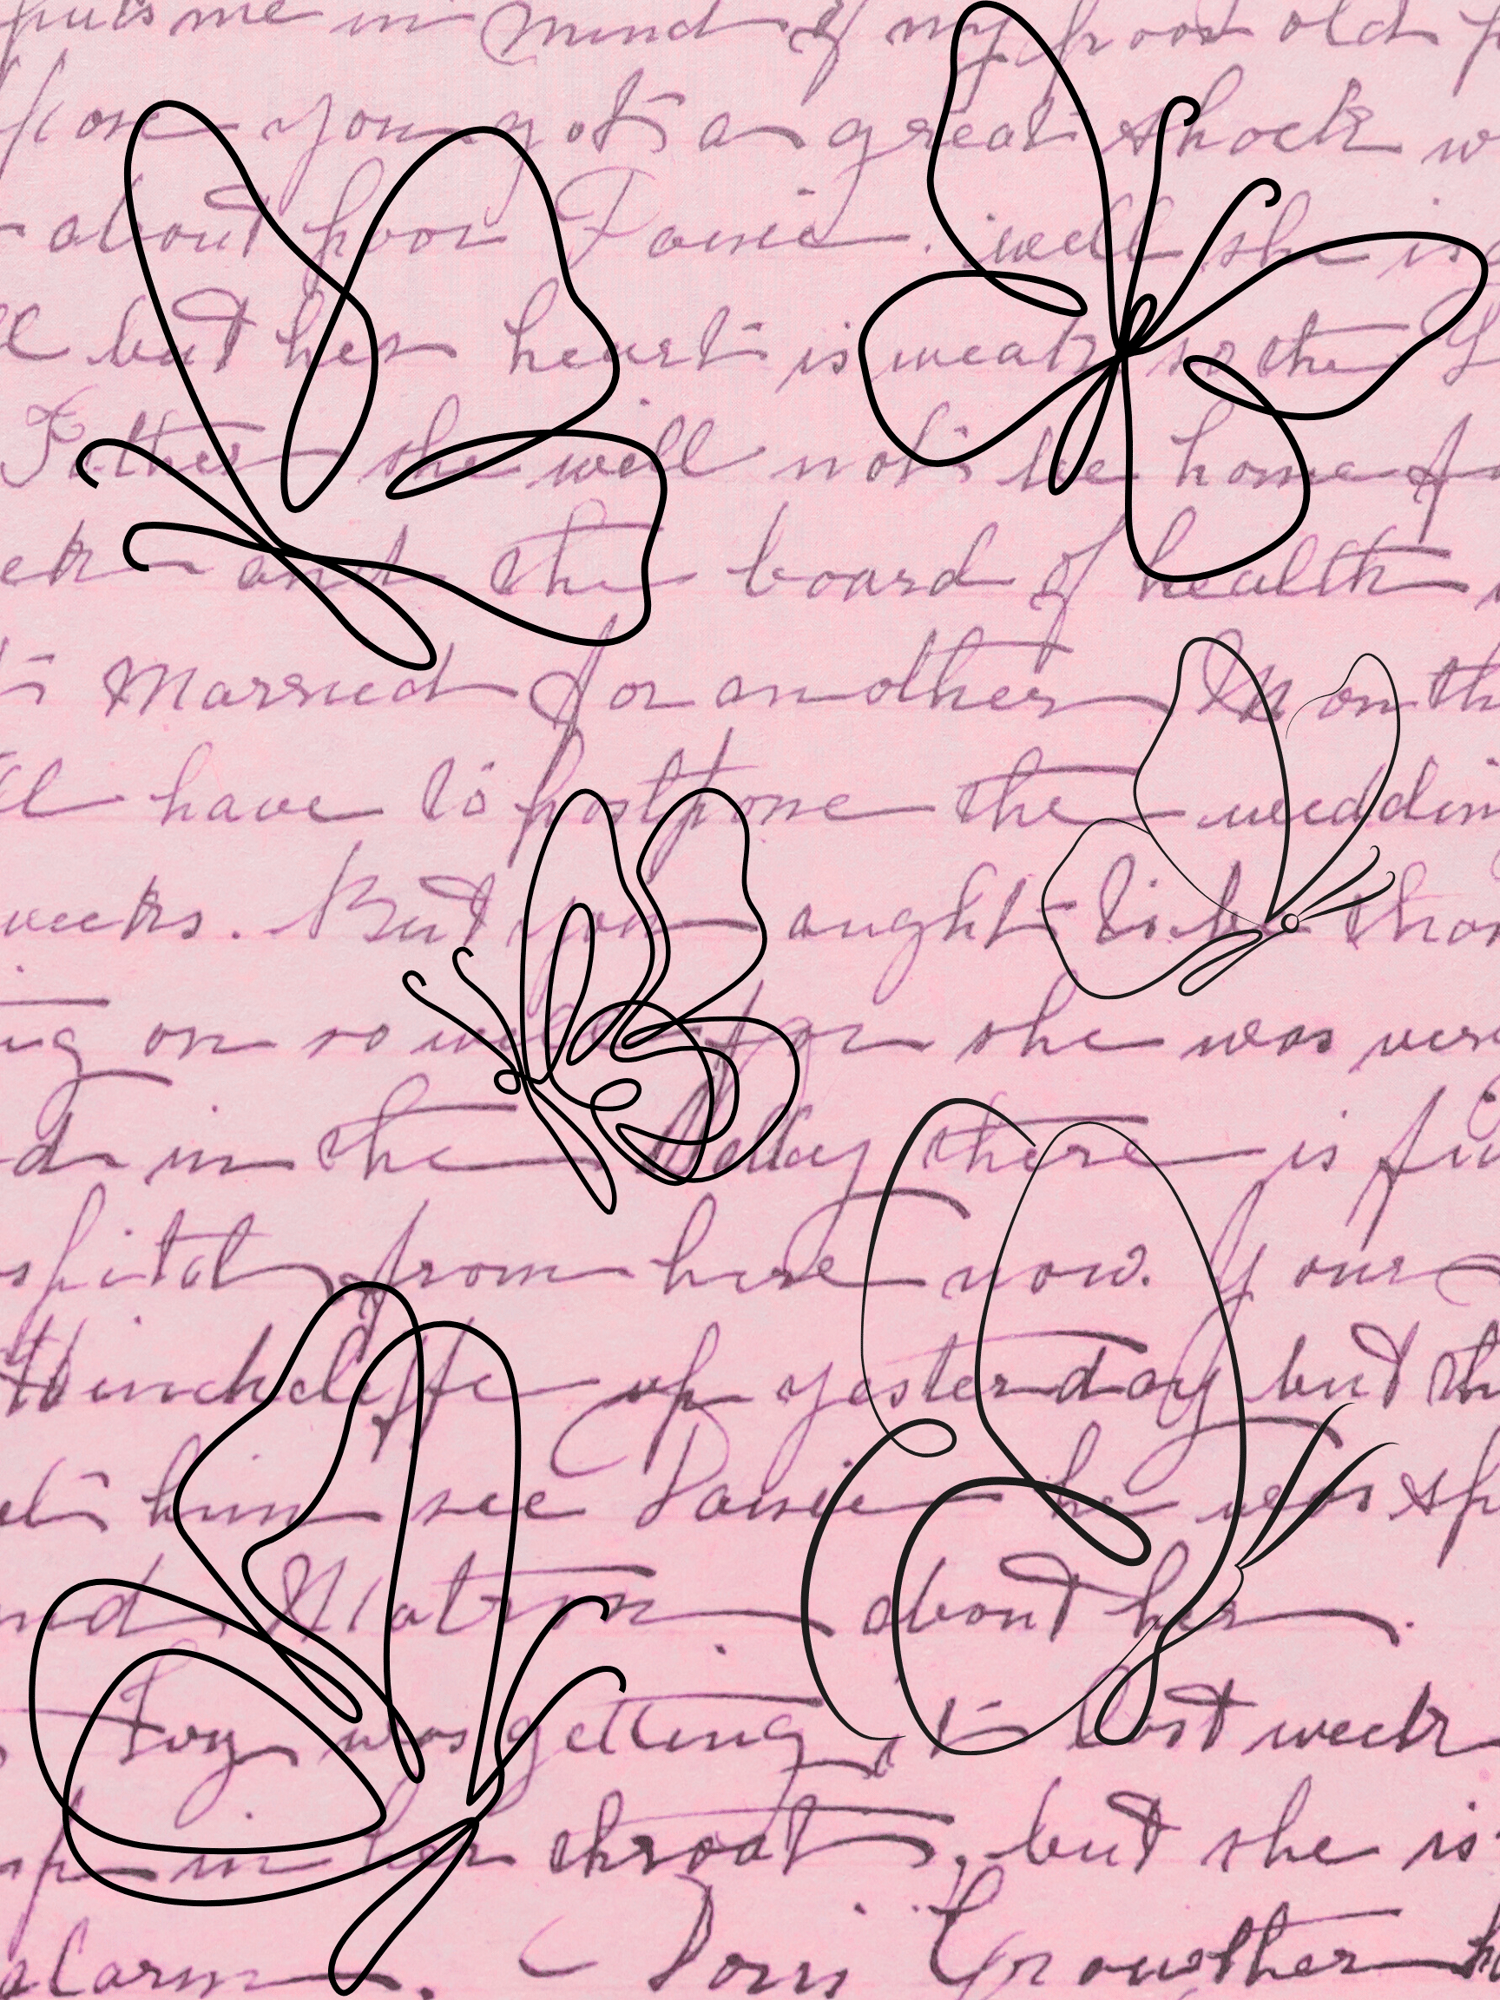 puts me in mind of my poor old
you got a great shock
about poor Janie. well she is
but her heart is weak, so the
Father she will not be home
and the board of health
Married for another Month
have to postpone the weddin
weeks. But you aught to be than
on so well for she was very
d in the Valley there is
spital from here now. Your
Hinchcliffe up yesterday but th
him see Janie he was
Matron about her.
was getting it last week
up in her throat, but she is
alarm. Doris Crowther